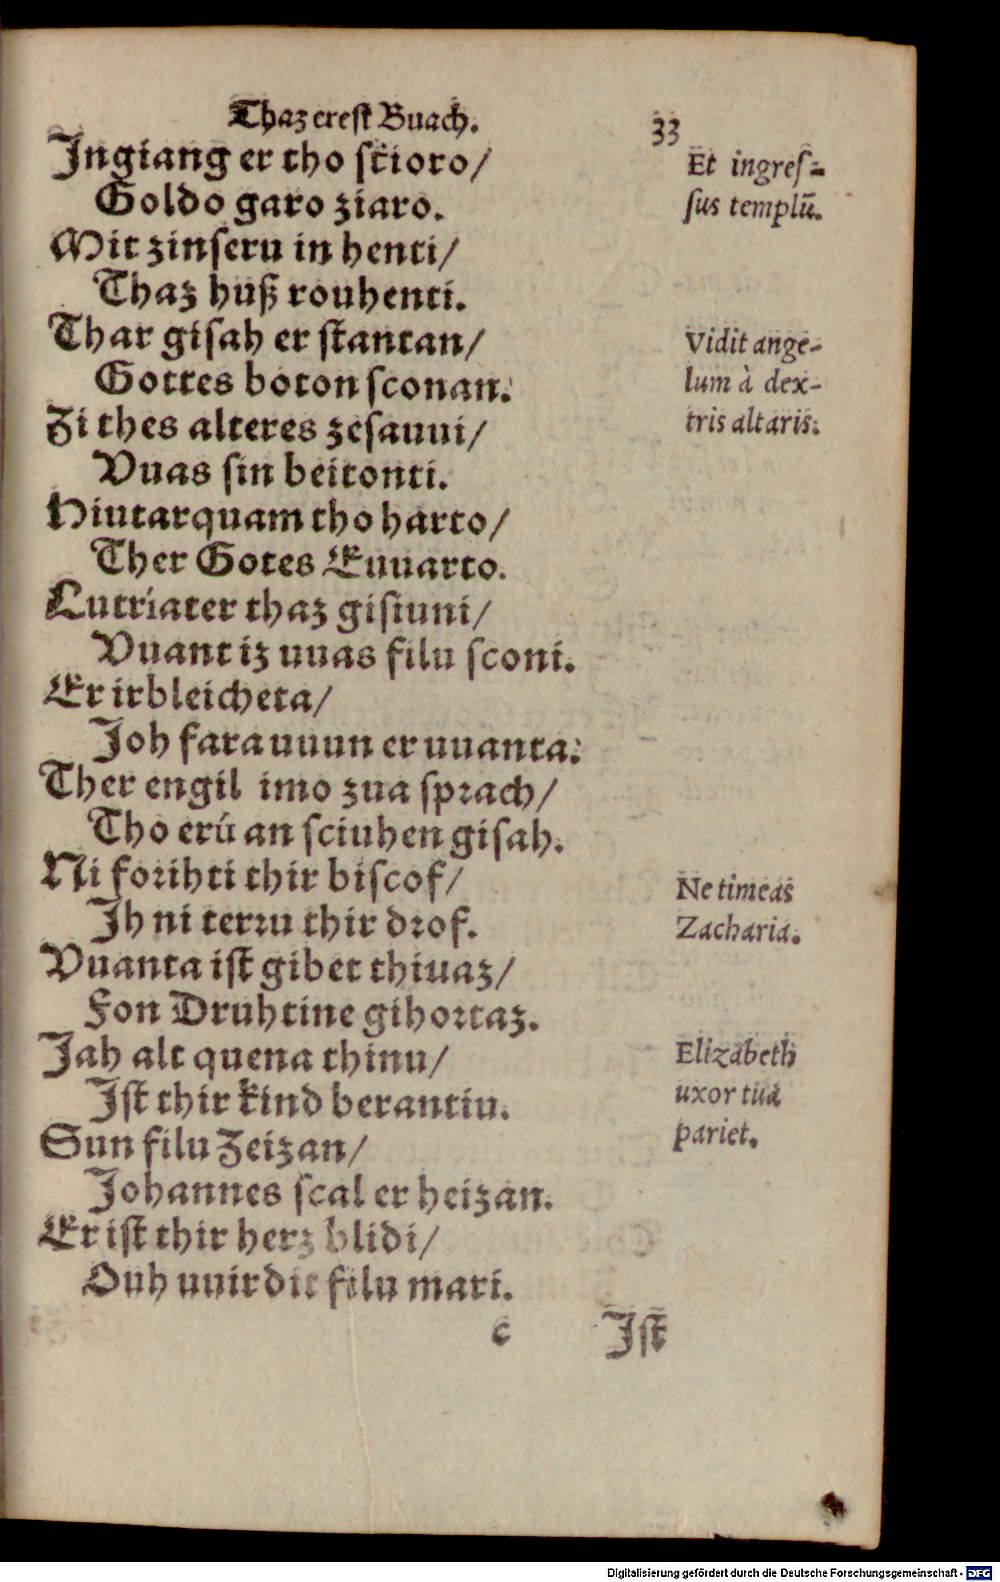 Thaz erest Buach.
33
Jngiang er tho scioro/
Goldo garo ziaro.
Mit zinseru in henti/
Thaz huß rouhenti.
Thar gisah er stantan/
Gottes boton sconan.
Zi thes alteres zesauui/
Vuas sin beitonti.
Hiutarquam tho harto/
Ther Gotes Euuarto.
Lutríater thaz gisiuni/
Vuant iz uuas filu sconi.
Er irbleicheta/
Joh fara uuun er uuanta.
Ther engil imo zua sprach/
Tho erú an sciuhen gisah.
Ni forihti thir biscof/
Jh ni terru thir drof.
Vuanta ist gibet thiuaz/
Fon Druhtine gihortaz.
Jah alt quena thinu/
Jst thir kind berantiu.
Sun filu Zeizan/
Johannes scal er heizan.
Er ist thir herz blidi/
Ouh uuirdit filu mari.
c
Jst
Et ingres-
sus templū.
Vidit ange-
lum à dex-
tris altaris.
Ne timeas
Zacharia.
Elizabeth
uxor tua
pariet.
Digitalisierung gefördert durch die Deutsche Forschungsgemeinschaft - DFG